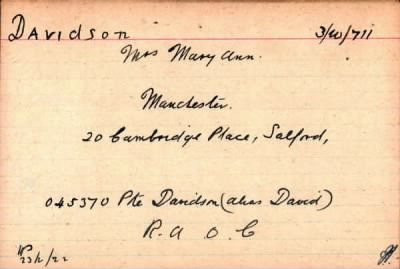 Davidson 3/W/711
Mrs Mary Ann.
Manchester.
20 Cambridge Place, Salford,
045370 Pte Davidson (alias David)
R. A. O. C
23/2/22